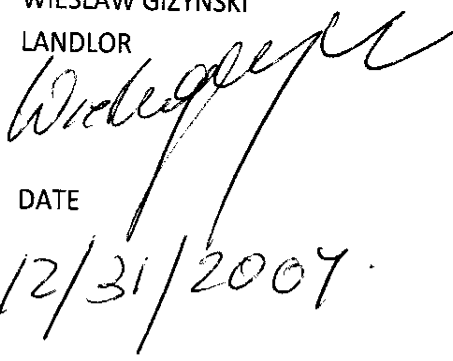 WIESLAW GIZYNSKI
LANDLOR
DATE
12/31/2007.